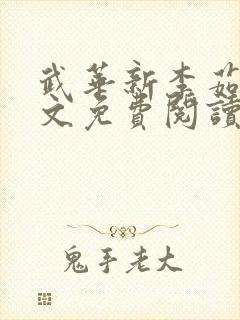 武華新李茹
文免費閱讀
鬼手老大